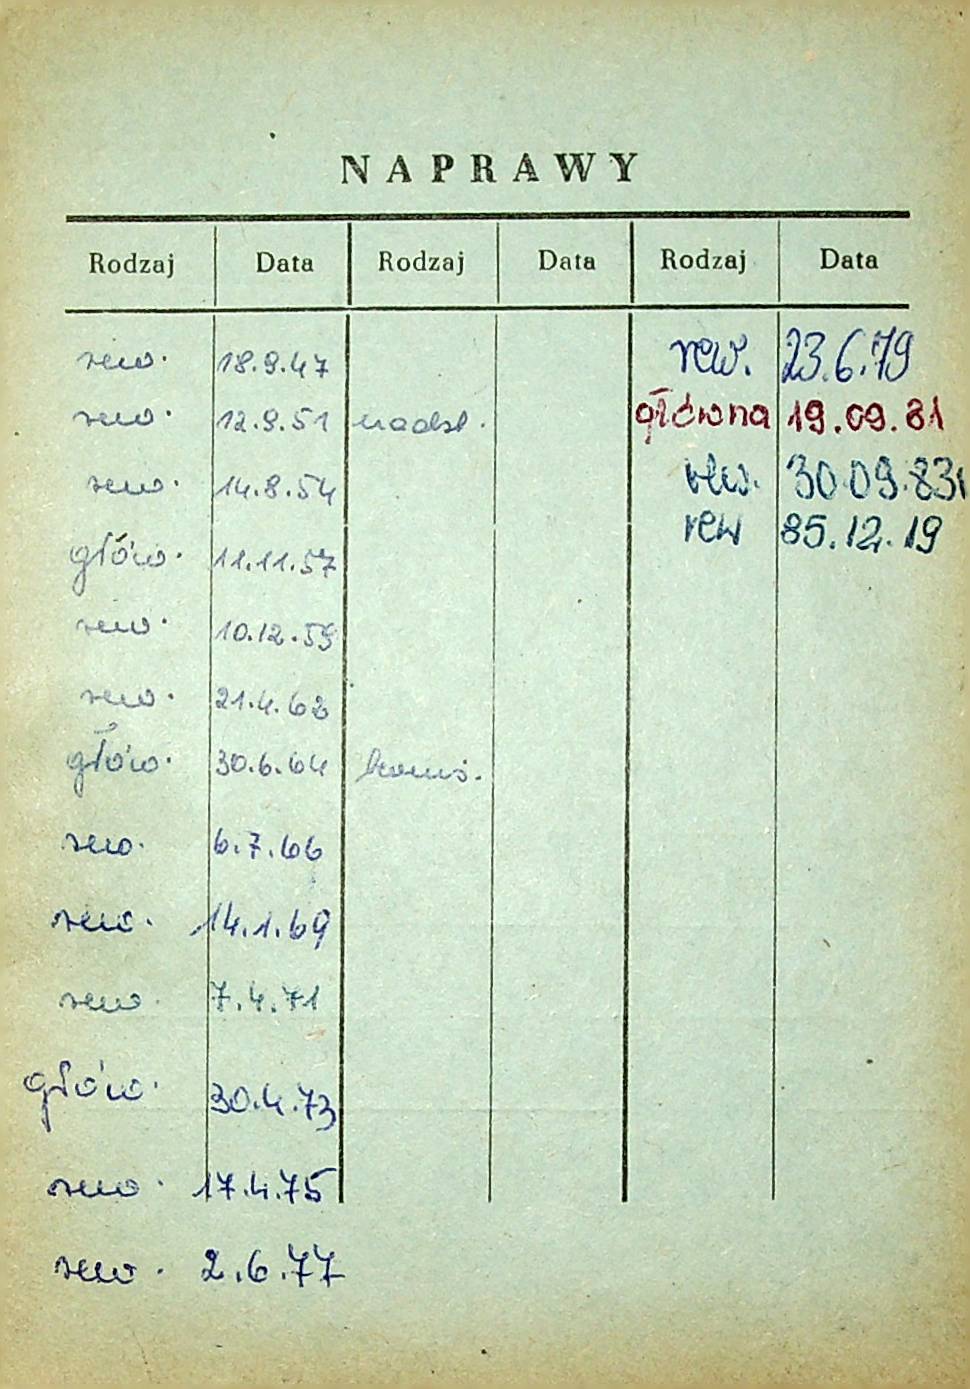 NAPRAWY
Rodzaj Data Rodzaj Data Rodzaj Data
rew. 18.9.47 rew. 23.6.79
rew. 12.9.51 nadsł. główna 19.09.81
rew. 14.8.54 rew. 30.09.83
głów. 11.11.57 rew 85.12.19
rew. 10.12.59
rew. 21.4.62
głów. 30.6.64
rew. 6.7.66
rew. 14.1.69
rew. 7.4.71
głów. 30.4.73
rew. 17.4.75
rew. 2.6.77